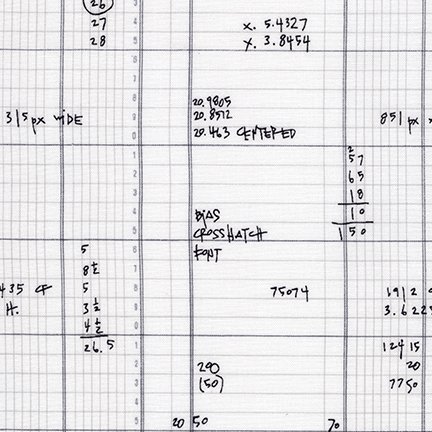 26
27
28
x. 5.4327
y. 3.8454
315px wide
20.9805
20.8512
20.463 CENTERED
851 px
2
57
65
18
10
150
BIAS
CROSSHATCH
FONT
5
8 1/2
5
3 1/2
4 1/2
26.5
435 CF
H.
75074
1912
3.622
290
(50)
124 15
20
7750
20 50
70